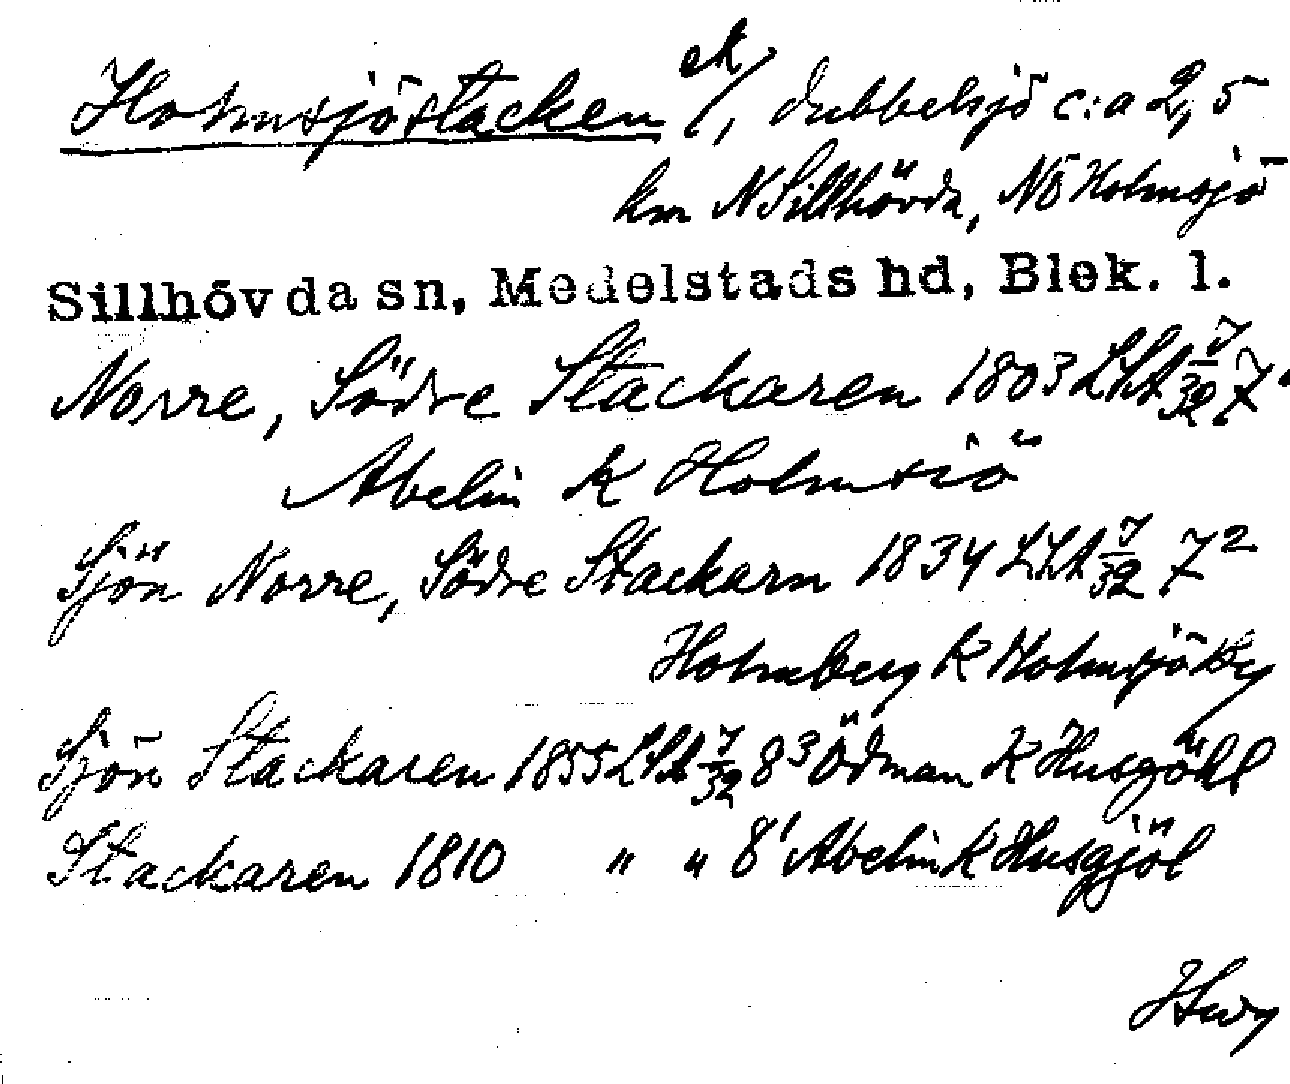 Holmsjöstacken ek/, dubbelsjö c:a 2,5
km N Sillhövda, NÖ Holmsjö
Sillhövda sn, Medelstads hd, Blek. l.
Norre, Södre Stackaren 1803 LSA 7/32 7
Abelin K Holmsiö
Sjön Norre, Södre Stackarn 1834 LSA 7/32 7²
Holmberg K Holmsjöby
Sjön Stackaren 1855 LSA 7/32 8³ Ödman K Husgöhl
Stackaren 1810 " " 8¹ Abelin K Husgjöl